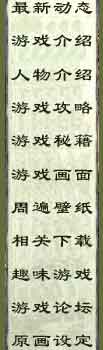 最新动态
游戏介绍
人物介绍
游戏攻略
游戏秘籍
游戏画面
周遍壁纸
相关下载
趣味游戏
游戏论坛
原画设定